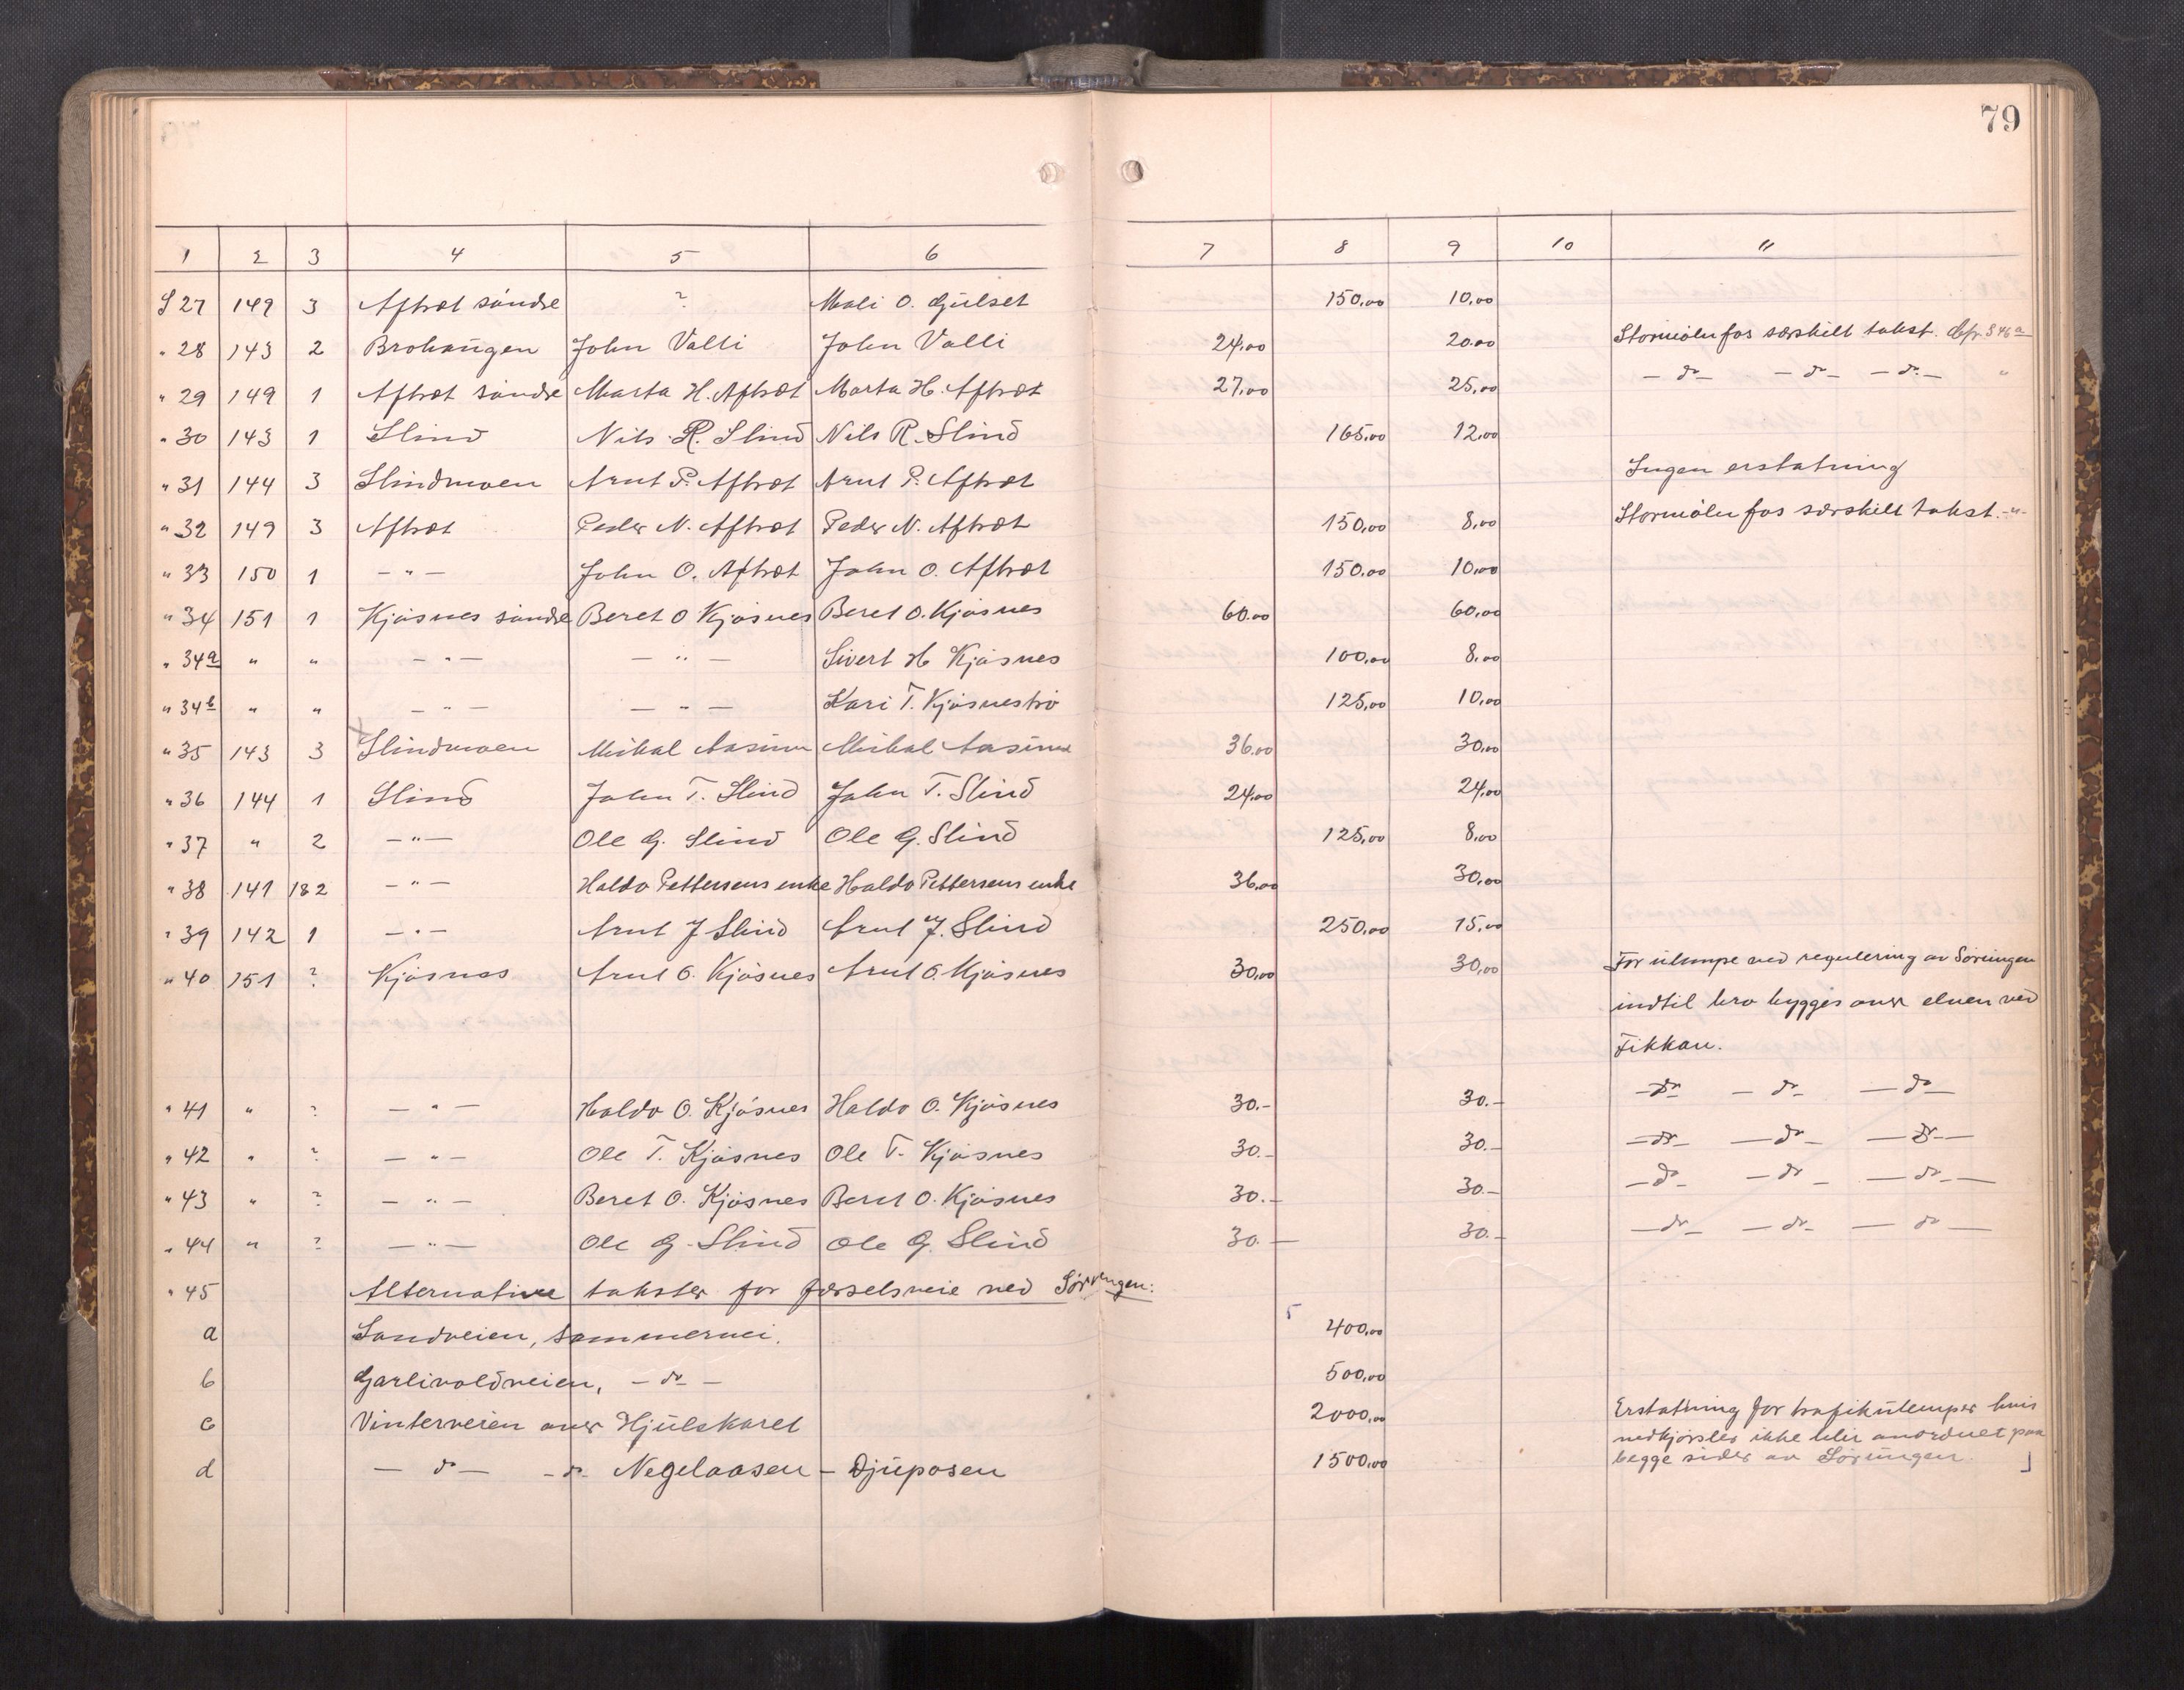 79
1 2 3 4 5 6 7 8 9 10 11
S 27 149 3 Aftret söndre ? Mali O. Gülset 150,00 10,00
" 28 143 2 Brohaugen John Valli John Valli 24,00 20.00 Stormølnfos særskilt takst. Cfr. S 46 a
" 29 149 1 Aftret söndre Marta H. Aftret Marta H. Aftret 27,00 25,00 — do — — do — — do — "
" 30 143 1 Slind Nils R. Slind Nils R. Slind 165,00 12,00
" 31 144 3 Slindmoen Arnt P. Aftret Arnt P. Aftret Ingen erstatning
" 32 149 3 Aftret Peder N. Aftret Peder N. Aftret 150,00 8,00 Stormølnfos særskilt takst. -"-
" 33 150 1 — " — John O. Aftret John O. Aftret 150.00 10,00
" 34 151 1 Kjösnes söndre Beret O Kjösnes Beret O. Kjösnes 60.00 60,00
" 34a " " — " — — " — Sivert H Kjösnes 100,00 8,00
" 34b " " — " — — " — Kari T. Kjösneströ 125,00 10,00
" 35 143 3 Slindmoen Mikal Aasimu Mikal Aasimu 36.00 30,00
" 36 144 1 Slind John T. Slind John T. Slind 24,00 24,00
" 37 " 2 — " — Ole G. Slind Ole G. Slind 125,00 8,00
" 38 141 1&2 — " — Haldo Pettersens enke Haldo Pettersens enke 36,00 30,00
" 39 142 1 — " — Arnt J Slind Arnt J. Slind 250,00 15,00
" 40 151 ? Kjösnes Arnt O. Kjösnes Arnt O. Kjösnes 30,00 30,00 For ulempe ved regulering av Sörungen
indtil bro bygges over elven ved
Fikkan.
" 41 " ? — " — Haldo O. Kjösnes Haldo O. Kjösnes 30.- 30.- — do — — do — — do —
" 42 " ? — " — Ole T. Kjösnes Ole T. Kjösnes 30.- 30.- — do — — do — — do —
" 43 " ? — " — Beret O. Kjösnes Beret O. Kjösnes 30.- 30.- — do — — do — — do —
" 44 " ? — " — Ole G. Slind Ole G. Slind 30.- 30.- — do — — do — — do —
" 45 Alternative takster for færselsveie ved Sörungen:
a Sandveien, sommervei. 400,00
b Garlivoldveien, — do — 500,00
c Vinterveien over Hjülskaret 2000,00 Erstatning for trafikülemper hvis
nedkjørsler ikke blir anordnet paa
d — do — - do - Negelaasen — Djüposen 1500,00 begge sider av Sörüngen.